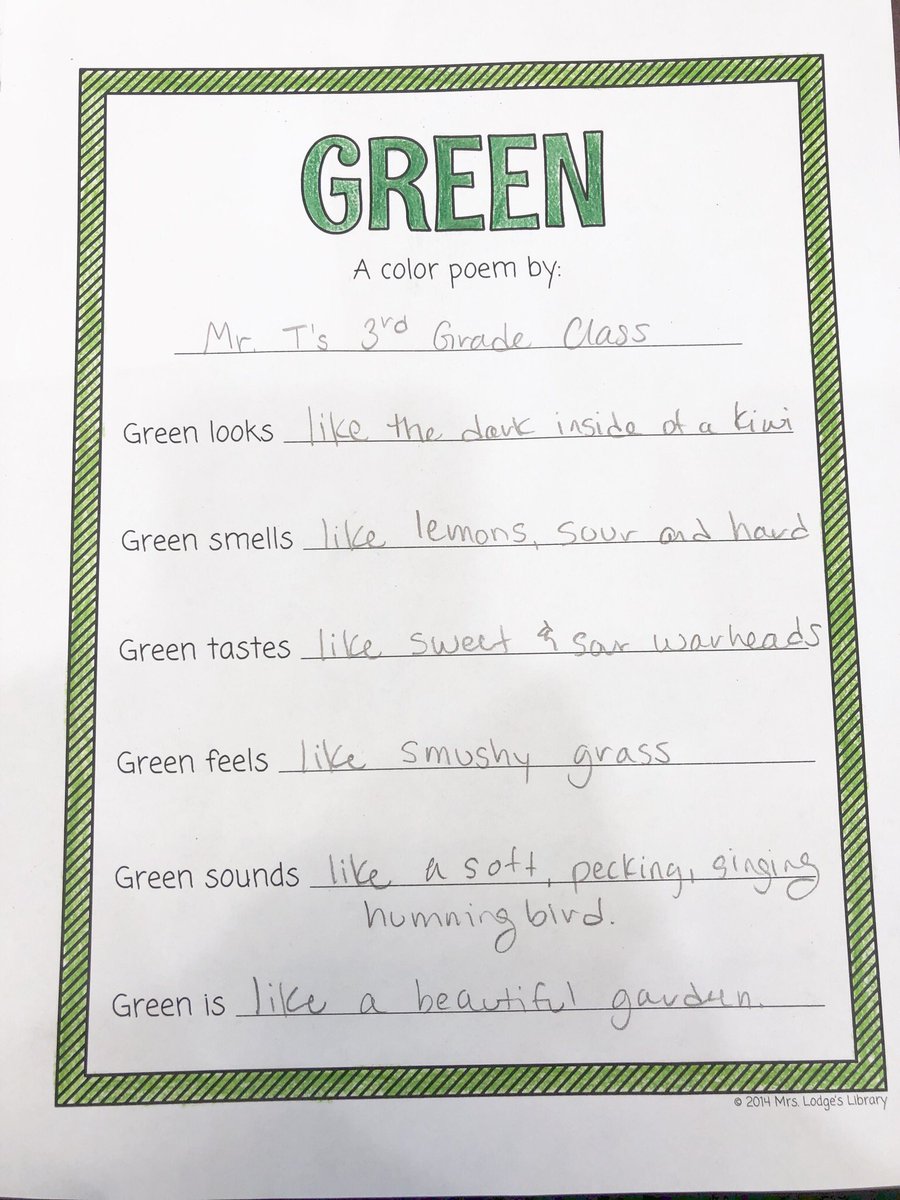 GREEN
A color poem by:
Mr. T's 3rd Grade Class
Green looks like the dark inside of a kiwi
Green smells like lemons, sour and hard
Green tastes like sweet & sour warheads
Green feels like smushy grass
Green sounds like a soft, pecking, singing
humming bird.
Green is like a beautiful garden.
© 2014 Mrs. Lodge's Library